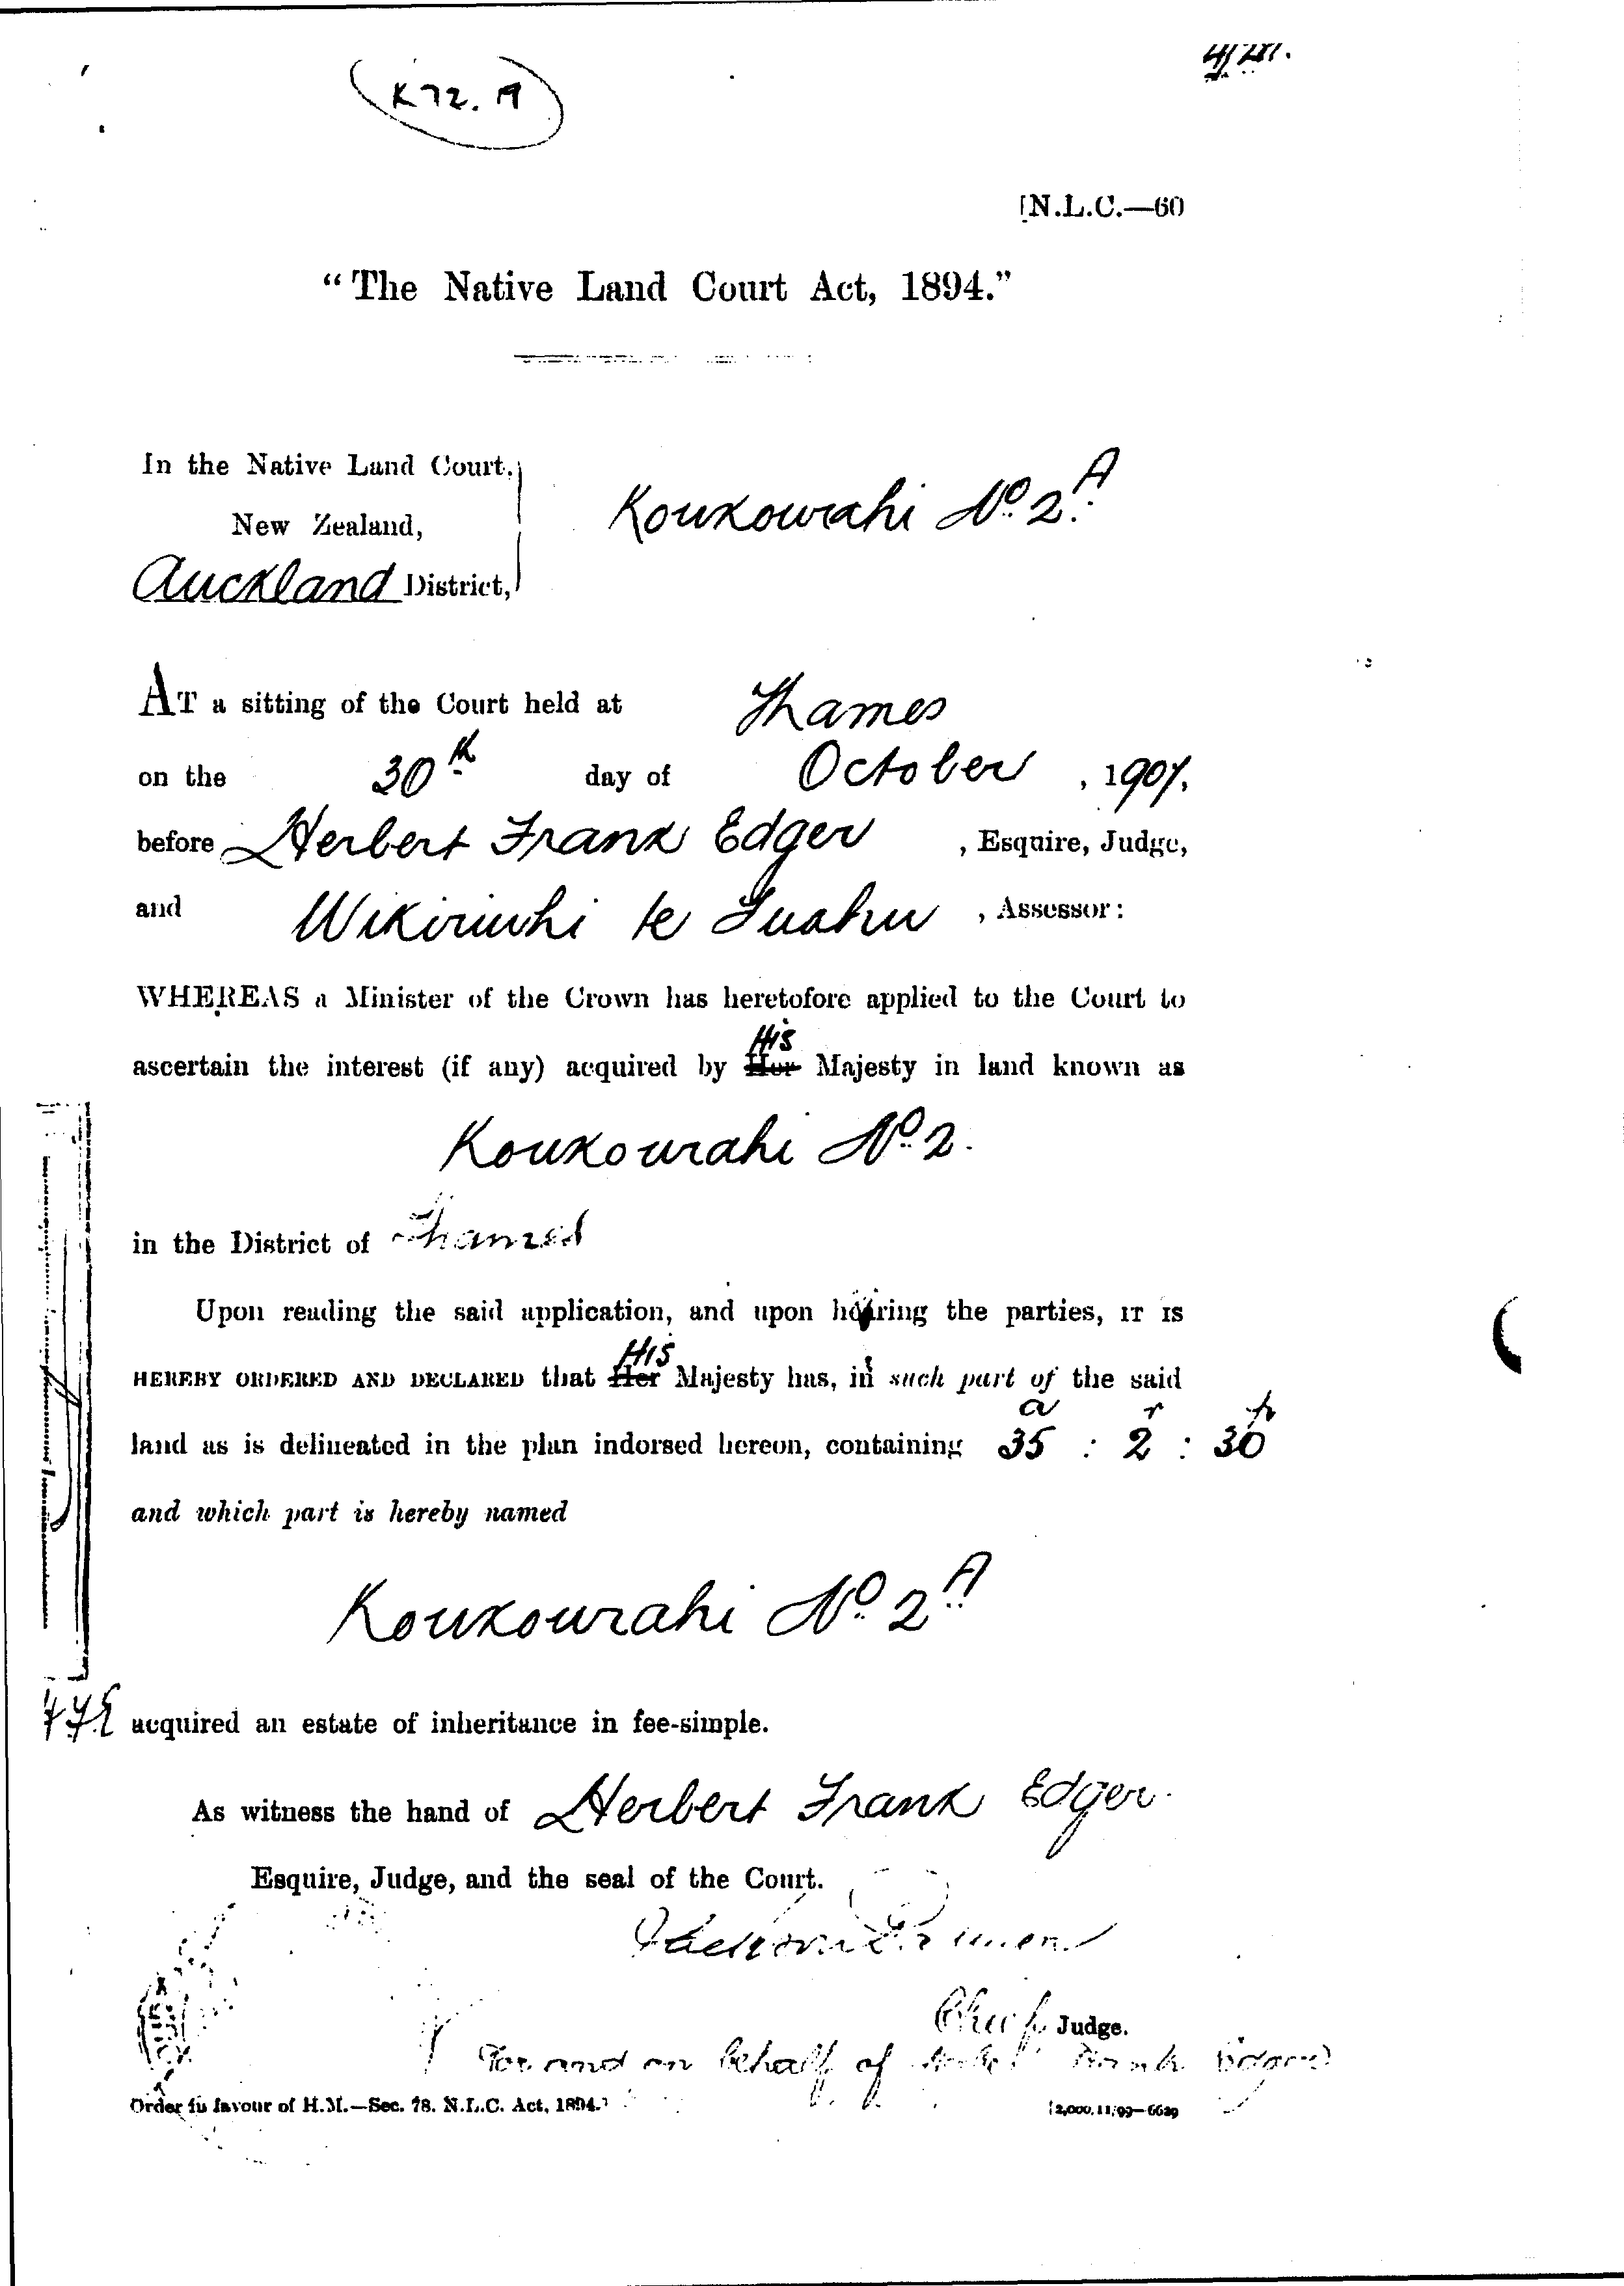 K72. A
[N.L.C.—60
“The Native Land Court Act, 1894.”
In the Native Land Court,
New Zealand,
Auckland District,
Koukourahi No. 2A
AT a sitting of the Court held at Thames
on the 30th day of October, 1901.
before Herbert Frank Edger, Esquire, Judge,
and Wikiriwhi te Tuahu, Assessor:
WHEREAS a Minister of the Crown has heretofore applied to the Court to
His
ascertain the interest (if any) acquired by Her Majesty in land known as
Koukourahi No. 2.
in the District of Thames
Upon reading the said application, and upon hearing the parties, IT IS
His
HEREBY ORDERED AND DECLARED that Her Majesty has, in such part of the said
a r p
land as is delineated in the plan indorsed hereon, containing 35 : 2 : 30
and which part is hereby named
Koukourahi No. 2A
acquired an estate of inheritance in fee-simple.
As witness the hand of Herbert Frank Edger.
Esquire, Judge, and the seal of the Court.
Chief Judge.
For and on behalf of Frank Edger
Order in favour of H.M.—Sec. 78. N.L.C. Act, 1894.]
[2,000.11/99—6629